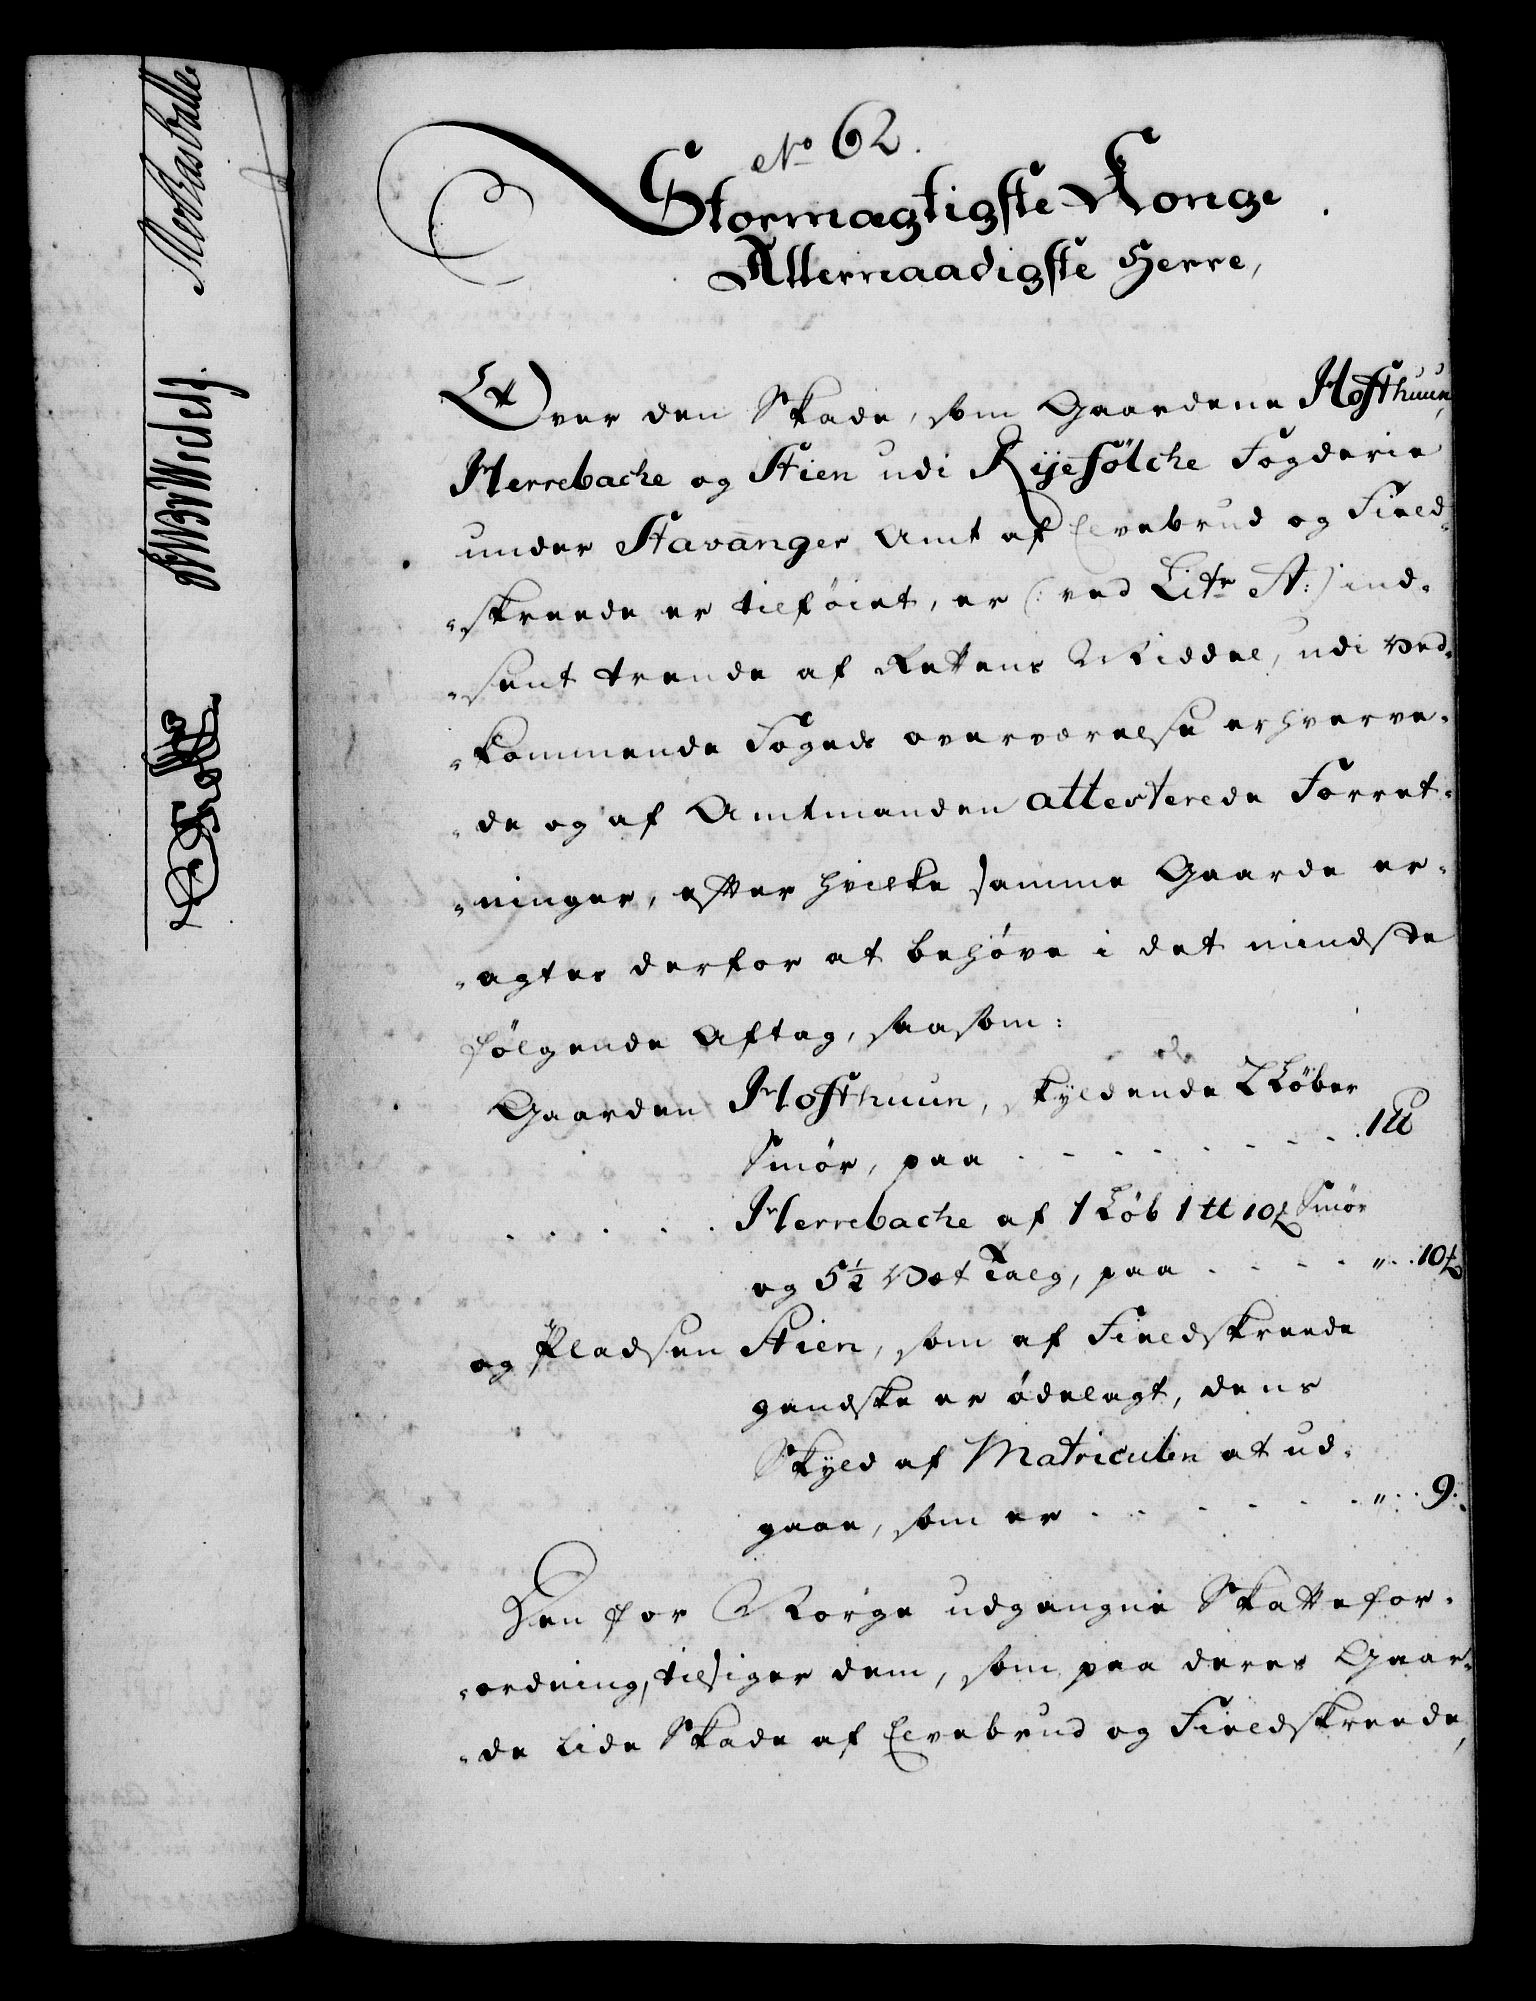 No 62.
Stormægtigste Konge
Allernaadigste Herre,
Over den Skade, som Gaardene Hofthuun,
Herrebache og Stien udi Ryefölche Fogderie
under Stavanger Amt af Elvebrud og Field-
skreede er tilföiet, er (: ved Litr A:) ind-
sent trende af Rettens Middel, udi ved-
kommende Fogeds overværelse erhverve-
de og af Amtmanden attesterede Forret-
ninger, efter hvilke samme Gaarde er-
agtes derfor at behöve i det mindste
fölgende Aftag, saasom:
Gaarden Hofthuun, skyldende 2 Löber
Smör, paa . . . . . . . . 1 tt
. . . . . Herrebache af 1 Löb 1 tt 10 ℔ Smör
og 5½ Vet Talg, paa . . . . " . . 10 ℔
og Pladsen Stien, som af Fieldskreede
gandske er ödelagt, dens
Skyld af Matriculen at ud-
gaae, som er . . . . . . " . . 9 :
Den for Norge udgangne Skattefor-
ordning, tilsiger dem, som paa deres Gaar-
de lide Skade af Elvebrud og Fieldskreede,